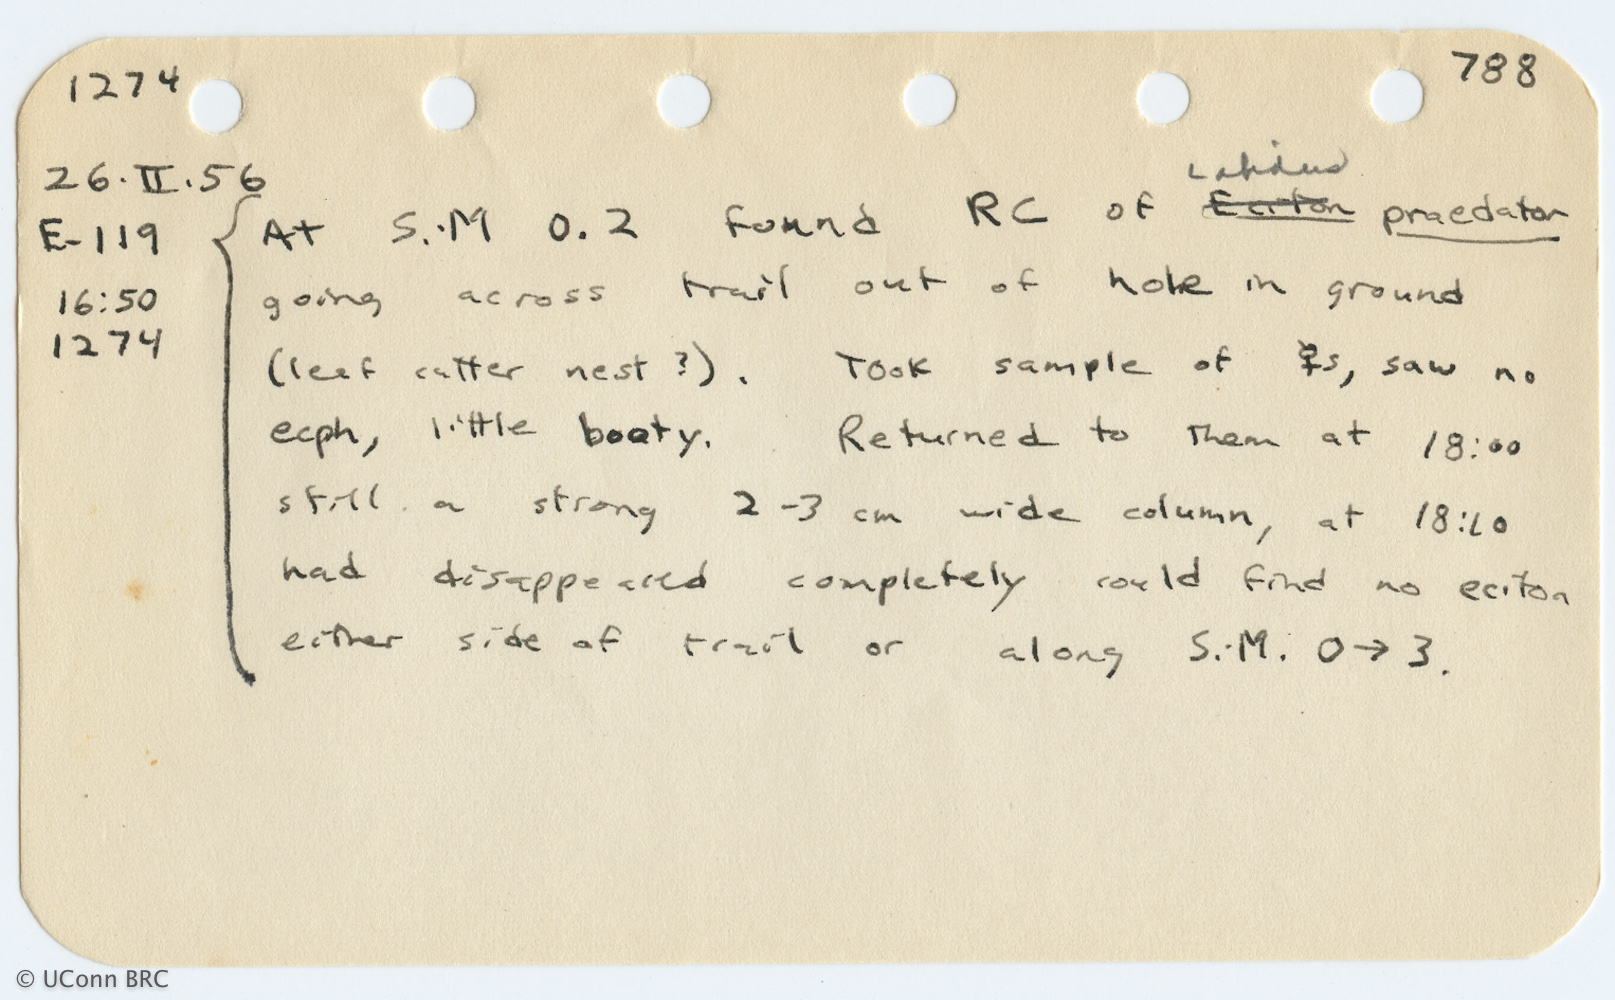 1274 788
Labidus
26.II.56
E-119 At S.M 0.2 found RC of Eciton praedator
16:50 going across trail out of hole in ground
1274 (leaf cutter nest?). Took sample of ☿s, saw no
ecph, little booty. Returned to them at 18:00
still a strong 2-3 cm wide column, at 18:10
had disappeared completely could find no eciton
either side of trail or along S.M. 0→3.
© UConn BRC